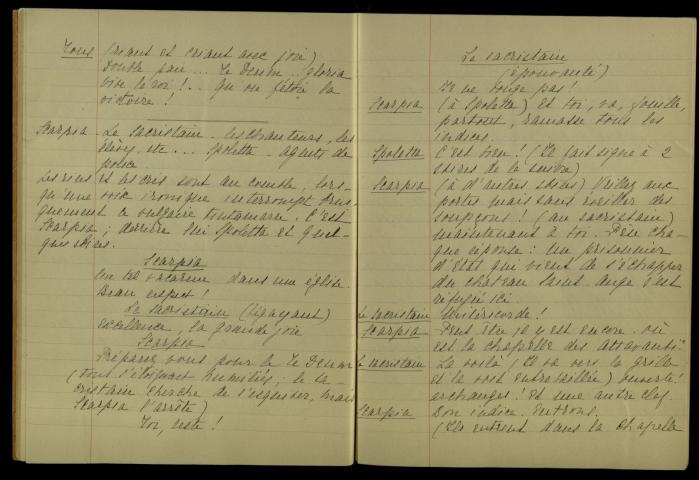 Tous (riant et criant avec joie)
Double paie... Te Deum... gloria
vive le roi!.. qu'on fête la
victoire!
Scarpia - Le Sacristain - les chanteurs, les
élèves etc... Spoletta - Agents de
police
Les rires et les cris sont au comble, lors-
qu'une voix ironique interrompt brus-
quement ce vulgaire tintamarre. C'est
Scarpia; derrière lui Spoletta et quel-
ques sbires.
Scarpia
Un tel vacarme dans une église.
Beau respect!
Le Sacristain (bégayant)
Excellence, la grande joie
Scarpia
Préparez vous pour le Te Deum
(tous s'éloignent humiliés; le sa-
cristain cherche de s'esquiver, mais
Scarpia l'arrête)
Toi, reste!
Le sacristain
(épouvanté)
Je ne bouge pas!
Scarpia (à Spoletta) Et toi, va, fouille,
partout, ramasse tous les
indices.
Spoletta C'est bien! (Il fait signe à 2
sbires de le suivre)
Scarpia (à d'autres sbires) Veillez aux
portes mais sans éveiller des
soupçons! (au sacristain)
maintenant à toi. Pèse cha-
que réponse: un prisonnier
d'Etat qui vient de s'échapper
du château Saint Ange s'est
réfugié ici
Le Sacristain Miséricorde!
Scarpia - Peut être il y est encore. où
est la chapelle des Attavanti
Le sacristain - La voilà (Il va vers la grille
et la voit entrebaillée) ouverte!
archanges! Et une autre clef.
Scarpia Bon indice. Entrons.
(Ils entrent dans la chapelle